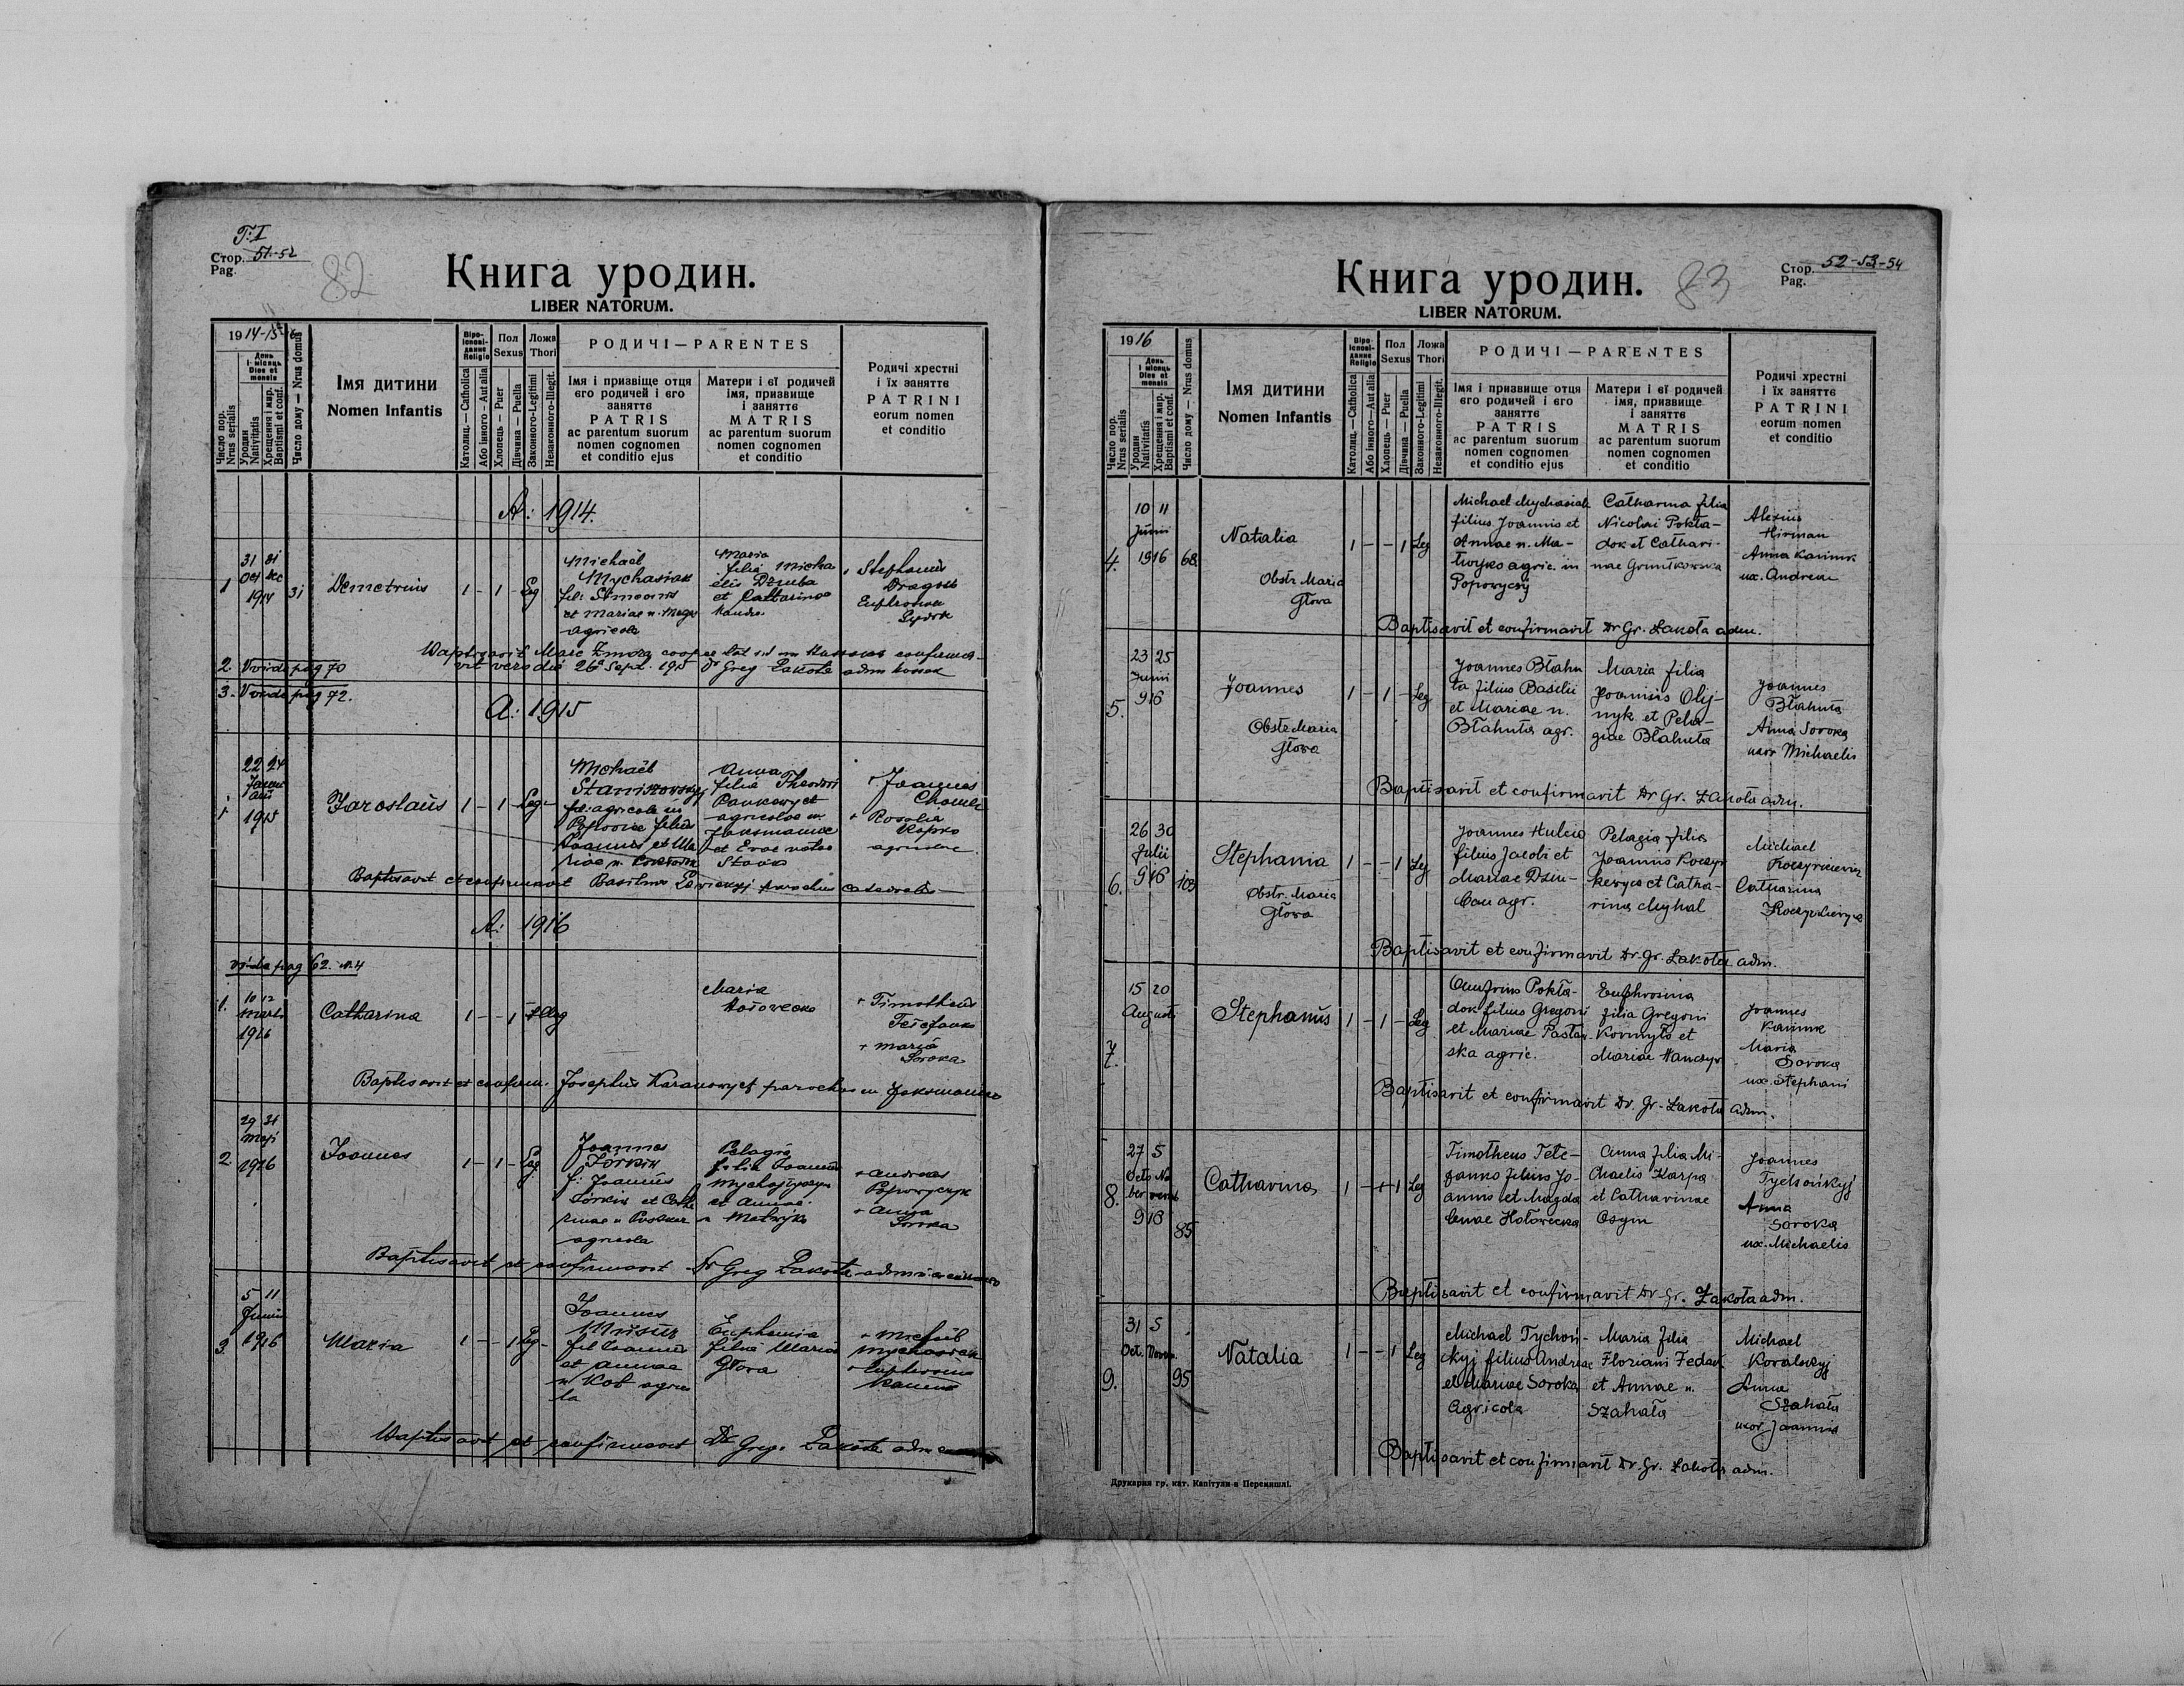 T: I
Стор. 51-52
Pag.
82
Книга уродин.
LIBER NATORUM.
1914-15-16
Число пор.
Nrus serialis
День і місяць
Dies et mensis
Уродин
Nativitatis
Хрещення і мир.
Baptismi et conf.
Число дому — Nrus domus
Імя дитини
Nomen Infantis
Віроісповідання
Religio
Католиц. — Catholica
Або інного — Aut alia
Пол
Sexus
Хлопець — Puer
Дівчина — Puella
Ложа
Thori
Законного-Legitimi
Незаконного-Illegit.
РОДИЧІ — PARENTES
Імя і призвіще отця
єго родичей і єго
заняттє
PATRIS
ac parentum suorum
nomen cognomen
et conditio ejus
Матери і єї родичей
імя, призвище
і заняттє
MATRIS
ac parentum suorum
nomen cognomen
et conditio
Родичі хрестні
і їх заняттє
PATRINI
eorum nomen
et conditio
A: 1914.
1
31 31
Oct Dec
1914
31
Demetrius
1 - 1 - Leg
Michaël
Mychasiak
fil: Simeonis
et Mariae n.
agricola
Maria
filia Micha
elis Dziuba
et Catharinae
Stephanus
Euphrosina
Baptisavit Marc
vit vers die 26 Sept. 1915 Dr Greg Lakota adm
2. V vide pag 70
3. V vide pag 72.
A: 1915
1.
22 24
Januarii
1915
Jaroslaus
1 - 1 - Leg -
Michaël
Staniszewskyj
fil: agricola in
Popowice filius
Joannis et Ma
riae n.
Anna
filia Theodori
agricolae in
Jaksmanice
et Evae natae
Joannes
+ Rosalia
agricolae
Baptisavit et confirmavit Basilius parochus
A: 1916
vide pag 62. N. 4
1.
10 12
Martii
1916
Catharina
1 - - 1 Illeg
Maria
Hołowecko
+ Timotheus
Tefefanko
+ Maria
Soroka
Baptisavit et confirm. Josephus parochus in Jaksmanice
2
29 31
Maji
1916
Joannes
1 - 1 - Leg
Joannes
f: Joannis
et Catha
rinae n
agricola
Pelagia
filia Joannis
et Annae
n Matwijko
+ Andreas
Popowyczyk
+ Anna
Soroka
Baptisavit et confirmavit Dr Greg Lakota
3
5 11
Junii
1916
Maria
1 - - 1 Leg -
Joannes
fil Joannis
et Annae
n Kot agrico
la
Euphemia
filia Maria
Głowa
+ Michaël
Mychasiak
+ Euphrosina
Baptisavit et confirmavit Dr Greg. Lakota adm
Стор. 52-53-54
Pag.
83
Книга уродин.
LIBER NATORUM.
1916
Число пор.
Nrus serialis
День і місяць
Dies et mensis
Уродин
Nativitatis
Хрещення і мир.
Baptismi et conf.
Число дому — Nrus domus
Імя дитини
Nomen Infantis
Віроісповідання
Religio
Католиц. — Catholica
Або інного — Aut alia
Пол
Sexus
Хлопець — Puer
Дівчина — Puella
Ложа
Thori
Законного-Legitimi
Незаконного-Illegit.
РОДИЧІ — PARENTES
Імя і призвіще отця
єго родичей і єго
заняттє
PATRIS
ac parentum suorum
nomen cognomen
et conditio ejus
Матери і єї родичей
імя, призвище
і заняттє
MATRIS
ac parentum suorum
nomen cognomen
et conditio
Родичі хрестні
і їх заняттє
PATRINI
eorum nomen
et conditio
4.
10 11
Junii
1916
68
Natalia
Obstr. Maria
Głowa
1 - - 1 Leg
Michael Mychasiak
filius Joannis et
Annae n. Ma-
twyko agric. in
Popowyczi
Catharina filia
Nicolai Pokła-
dok et Cathari-
nae Gruntkowska
Alexius
Hirman
Anna Kaniuk
ux. Andreae
Baptisavit et confirmavit Dr Gr. Lakota adm.
5.
23 25
Junii
916
Joannes
Obstr Maria
Głowa
1 - 1 - Leg
Joannes Błahu
ta filius Basilii
et Mariae n.
Błahuta agr.
Maria filia
Joannis Olij-
nyk et Pela-
giae Błahuta
Joannes
Błahuta
Anna Soroka
uxor Michaelis
Baptisavit et confirmavit Dr Gr. Lakota adm.
6.
26 30
Julii
916
103
Stephania
Obstr. Maria
Głowa
1 - - 1 Leg
Joannes Hulcio
filius Jacobi et
Mariae Dziu-
ban agr.
Pelagia filia
Joannis Koczyr
kewycz et Catha-
rina Myhal
Michael
Koczyrkiewicz
Catharina
Koczyrkewycz
Baptisavit et confirmavit Dr. Gr. Lakota adm.
7.
15 20
Augusti
Stephanus
1 - 1 - Leg
Onufrius Pokła-
dok filius Gregorii
et Mariae
ska agric.
Euphrosina
filia Gregorii
Kormyło et
Mariae Hanczyn
Joannes
Kaniuk
Maria
Soroka
ux. Stephani
Baptisavit et confirmavit Dr. Gr. Lakota adm.
8.
27 5
Octo No
ber vemb
918
85
Catharina
1 - + 1 Leg
Timotheus Tefe-
fanko filius Jo-
annis et Magda
lenae Hołowecka
Anna filia Mi-
chaelis Karpa
et Catharinae
Osym
Joannes
Tychońskyj
Anna
Soroka
ux. Michaelis
Baptisavit et confirmavit Dr. Gr. Lakota adm.
9.
31 5
Oct. Novem.
95
Natalia
1 - - 1 Leg
Michael Tychoń-
ckyj filius Andreae
et Mariae Soroka
Agricola
Maria filia
Floriani Fedak
et Annae n.
Szahała
Michael
Kowalskyj
Anna
Szahała
uxor Joannis
Baptisavit et confirmavit Dr. Gr. Lakota adm.
Друкарня гр. кат. Капітули в Перемишлі.